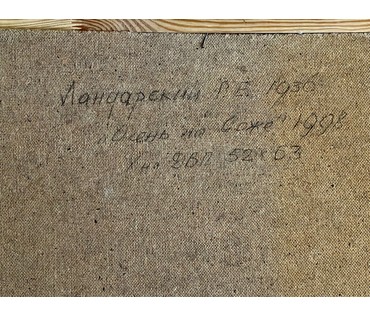 Ландарский Г.Е. 1936
"Осень на Соже" 1998
ДВП 52х63